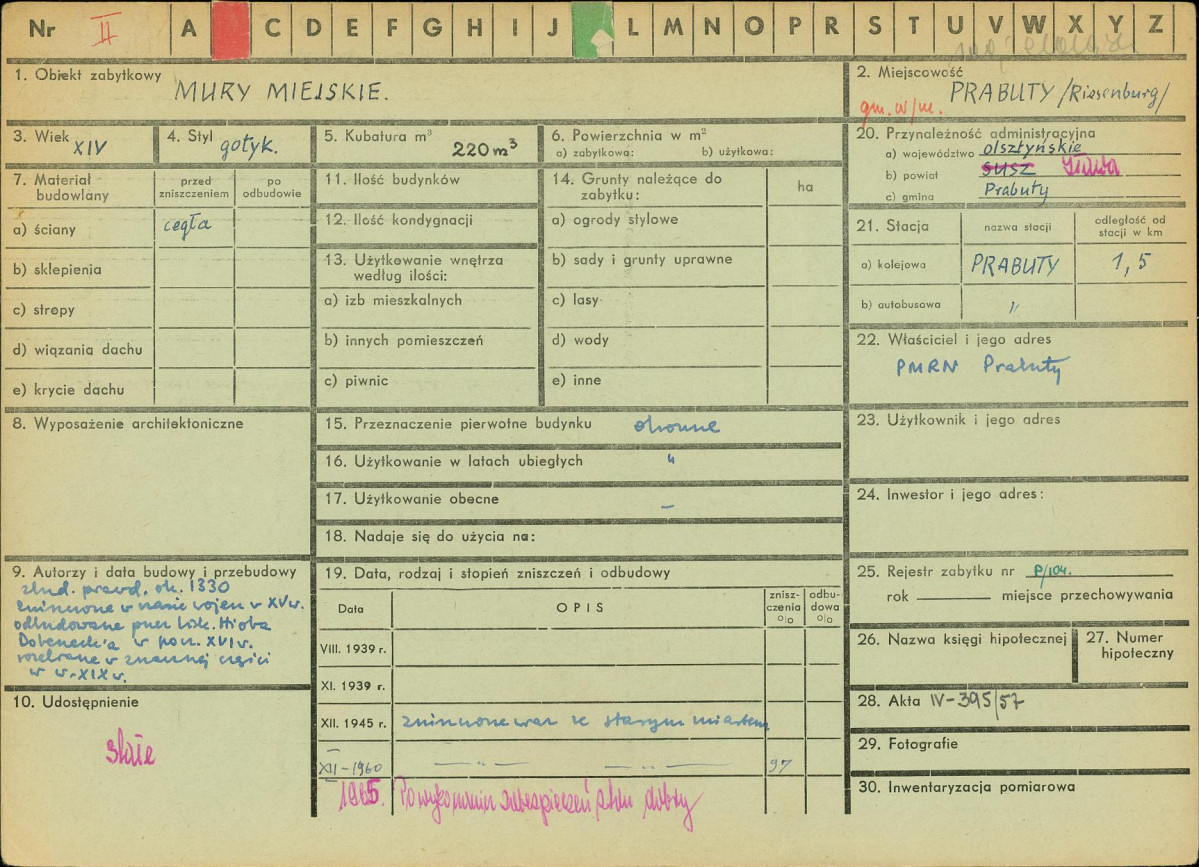 Nr II A C D E F G H I J L M N O P R S T U V W X Y Z
1. Obiekt zabytkowy
MURY MIEJSKIE.
2. Miejscowość
PRABUTY /Riesenburg/
gm. w/m.
3. Wiek
XIV
4. Styl
gotyk.
5. Kubatura m³
220 m³
6. Powierzchnia w m²
a) zabytkowa: b) użytkowa:
20. Przynależność administracyjna
a) województwo olsztyńskie
b) powiat SUSZ Iława
c) gmina Prabuty
7. Materiał budowlany
przed zniszczeniem
po odbudowie
a) ściany cegła
b) sklepienia
c) stropy
d) wiązania dachu
e) krycie dachu
11. Ilość budynków
12. Ilość kondygnacji
13. Użytkowanie wnętrza
według ilości:
a) izb mieszkalnych
b) innych pomieszczeń
c) piwnic
14. Grunty należące do
zabytku:
ha
a) ogrody stylowe
b) sady i grunty uprawne
c) lasy
d) wody
e) inne
21. Stacja
nazwa stacji
odległość od
stacji w km
a) kolejowa PRABUTY 1,5
b) autobusowa "
22. Właściciel i jego adres
PMRN Prabuty
8. Wyposażenie architektoniczne
15. Przeznaczenie pierwotne budynku obronne
16. Użytkowanie w latach ubiegłych "
17. Użytkowanie obecne –
18. Nadaje się do użycia na:
23. Użytkownik i jego adres
24. Inwestor i jego adres:
9. Autorzy i data budowy i przebudowy
zbud. prawd. ok. 1330
zniszczone w czasie wojen w XV w.
odbudowane przez bisk. Hioba
Dobeneck'a w pocz. XVI w.
rozebrane w znacznej części
w w. XIX w.
10. Udostępnienie
stałe
19. Data, rodzaj i stopień zniszczeń i odbudowy
Data
OPIS
znisz-
czenia
%
odbu-
dowa
%
VIII. 1939 r.
XI. 1939 r.
XII. 1945 r. zniszczone wraz ze starym miastem
XII-1960 — " — — " — 97
1965. Po wykonaniu zabezpieczeń stan dobry
25. Rejestr zabytku nr P/104.
rok miejsce przechowywania
26. Nazwa księgi hipotecznej
27. Numer
hipoteczny
28. Akta IV-395/57
29. Fotografie
30. Inwentaryzacja pomiarowa